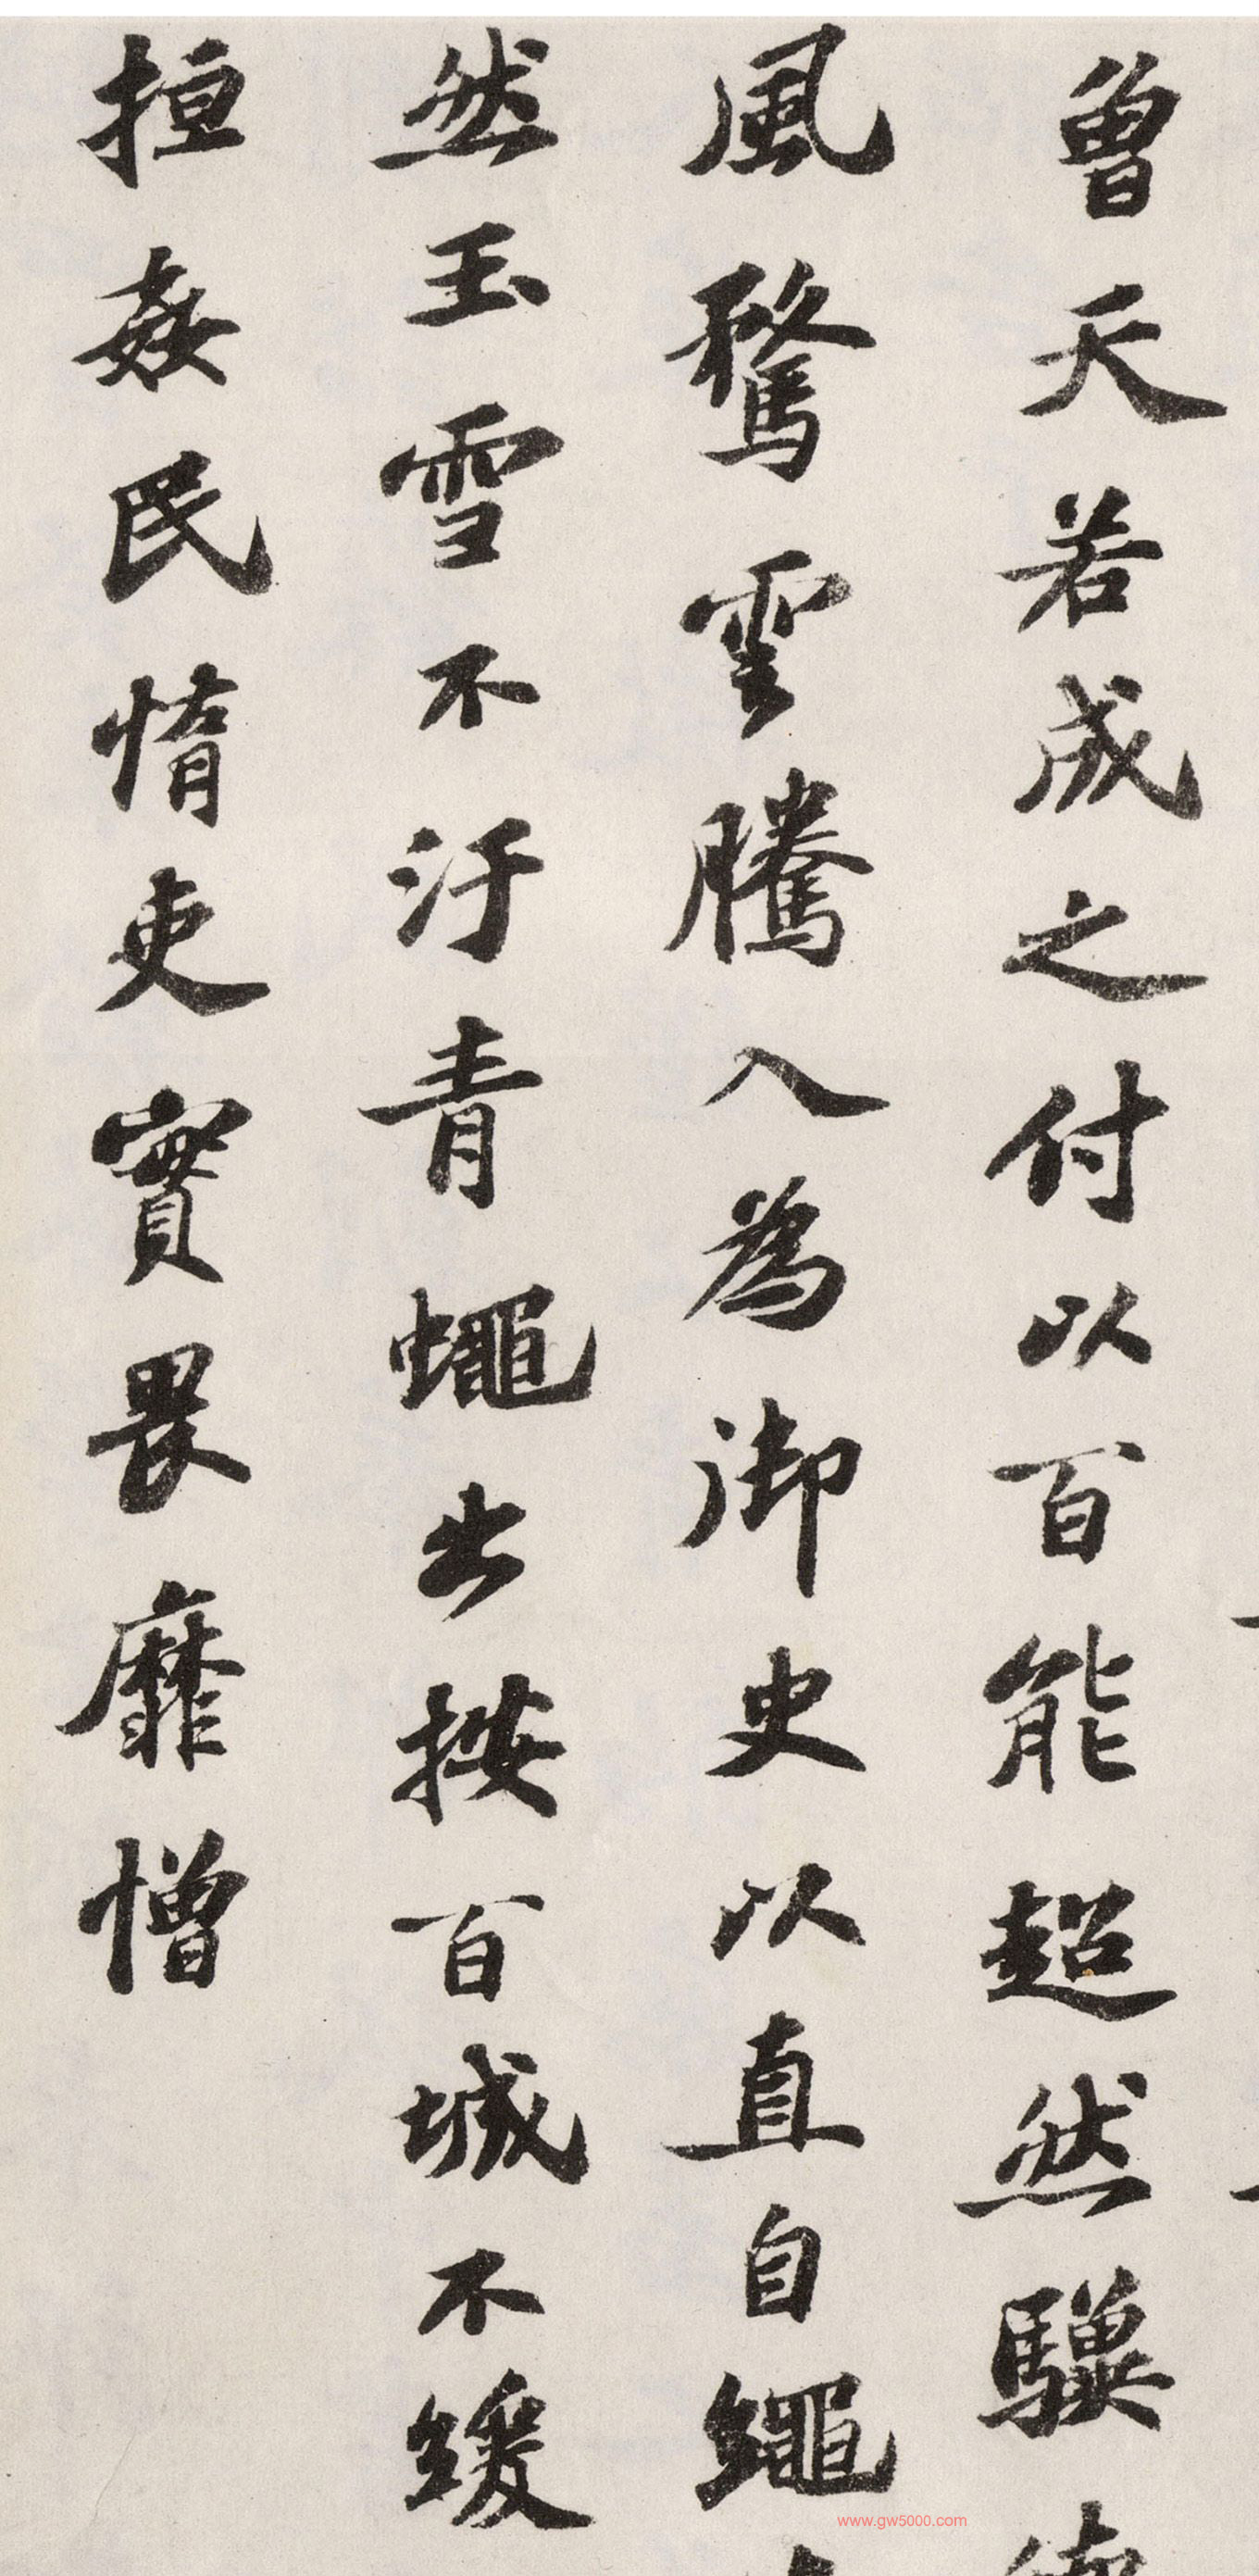 曾天若成之付以百能超然驥
風騖雲騰入為御史以直自繩
然玉雪不汙青蠅出按百城不緩
姦民惰吏實畏靡憎
www.gw5000.com